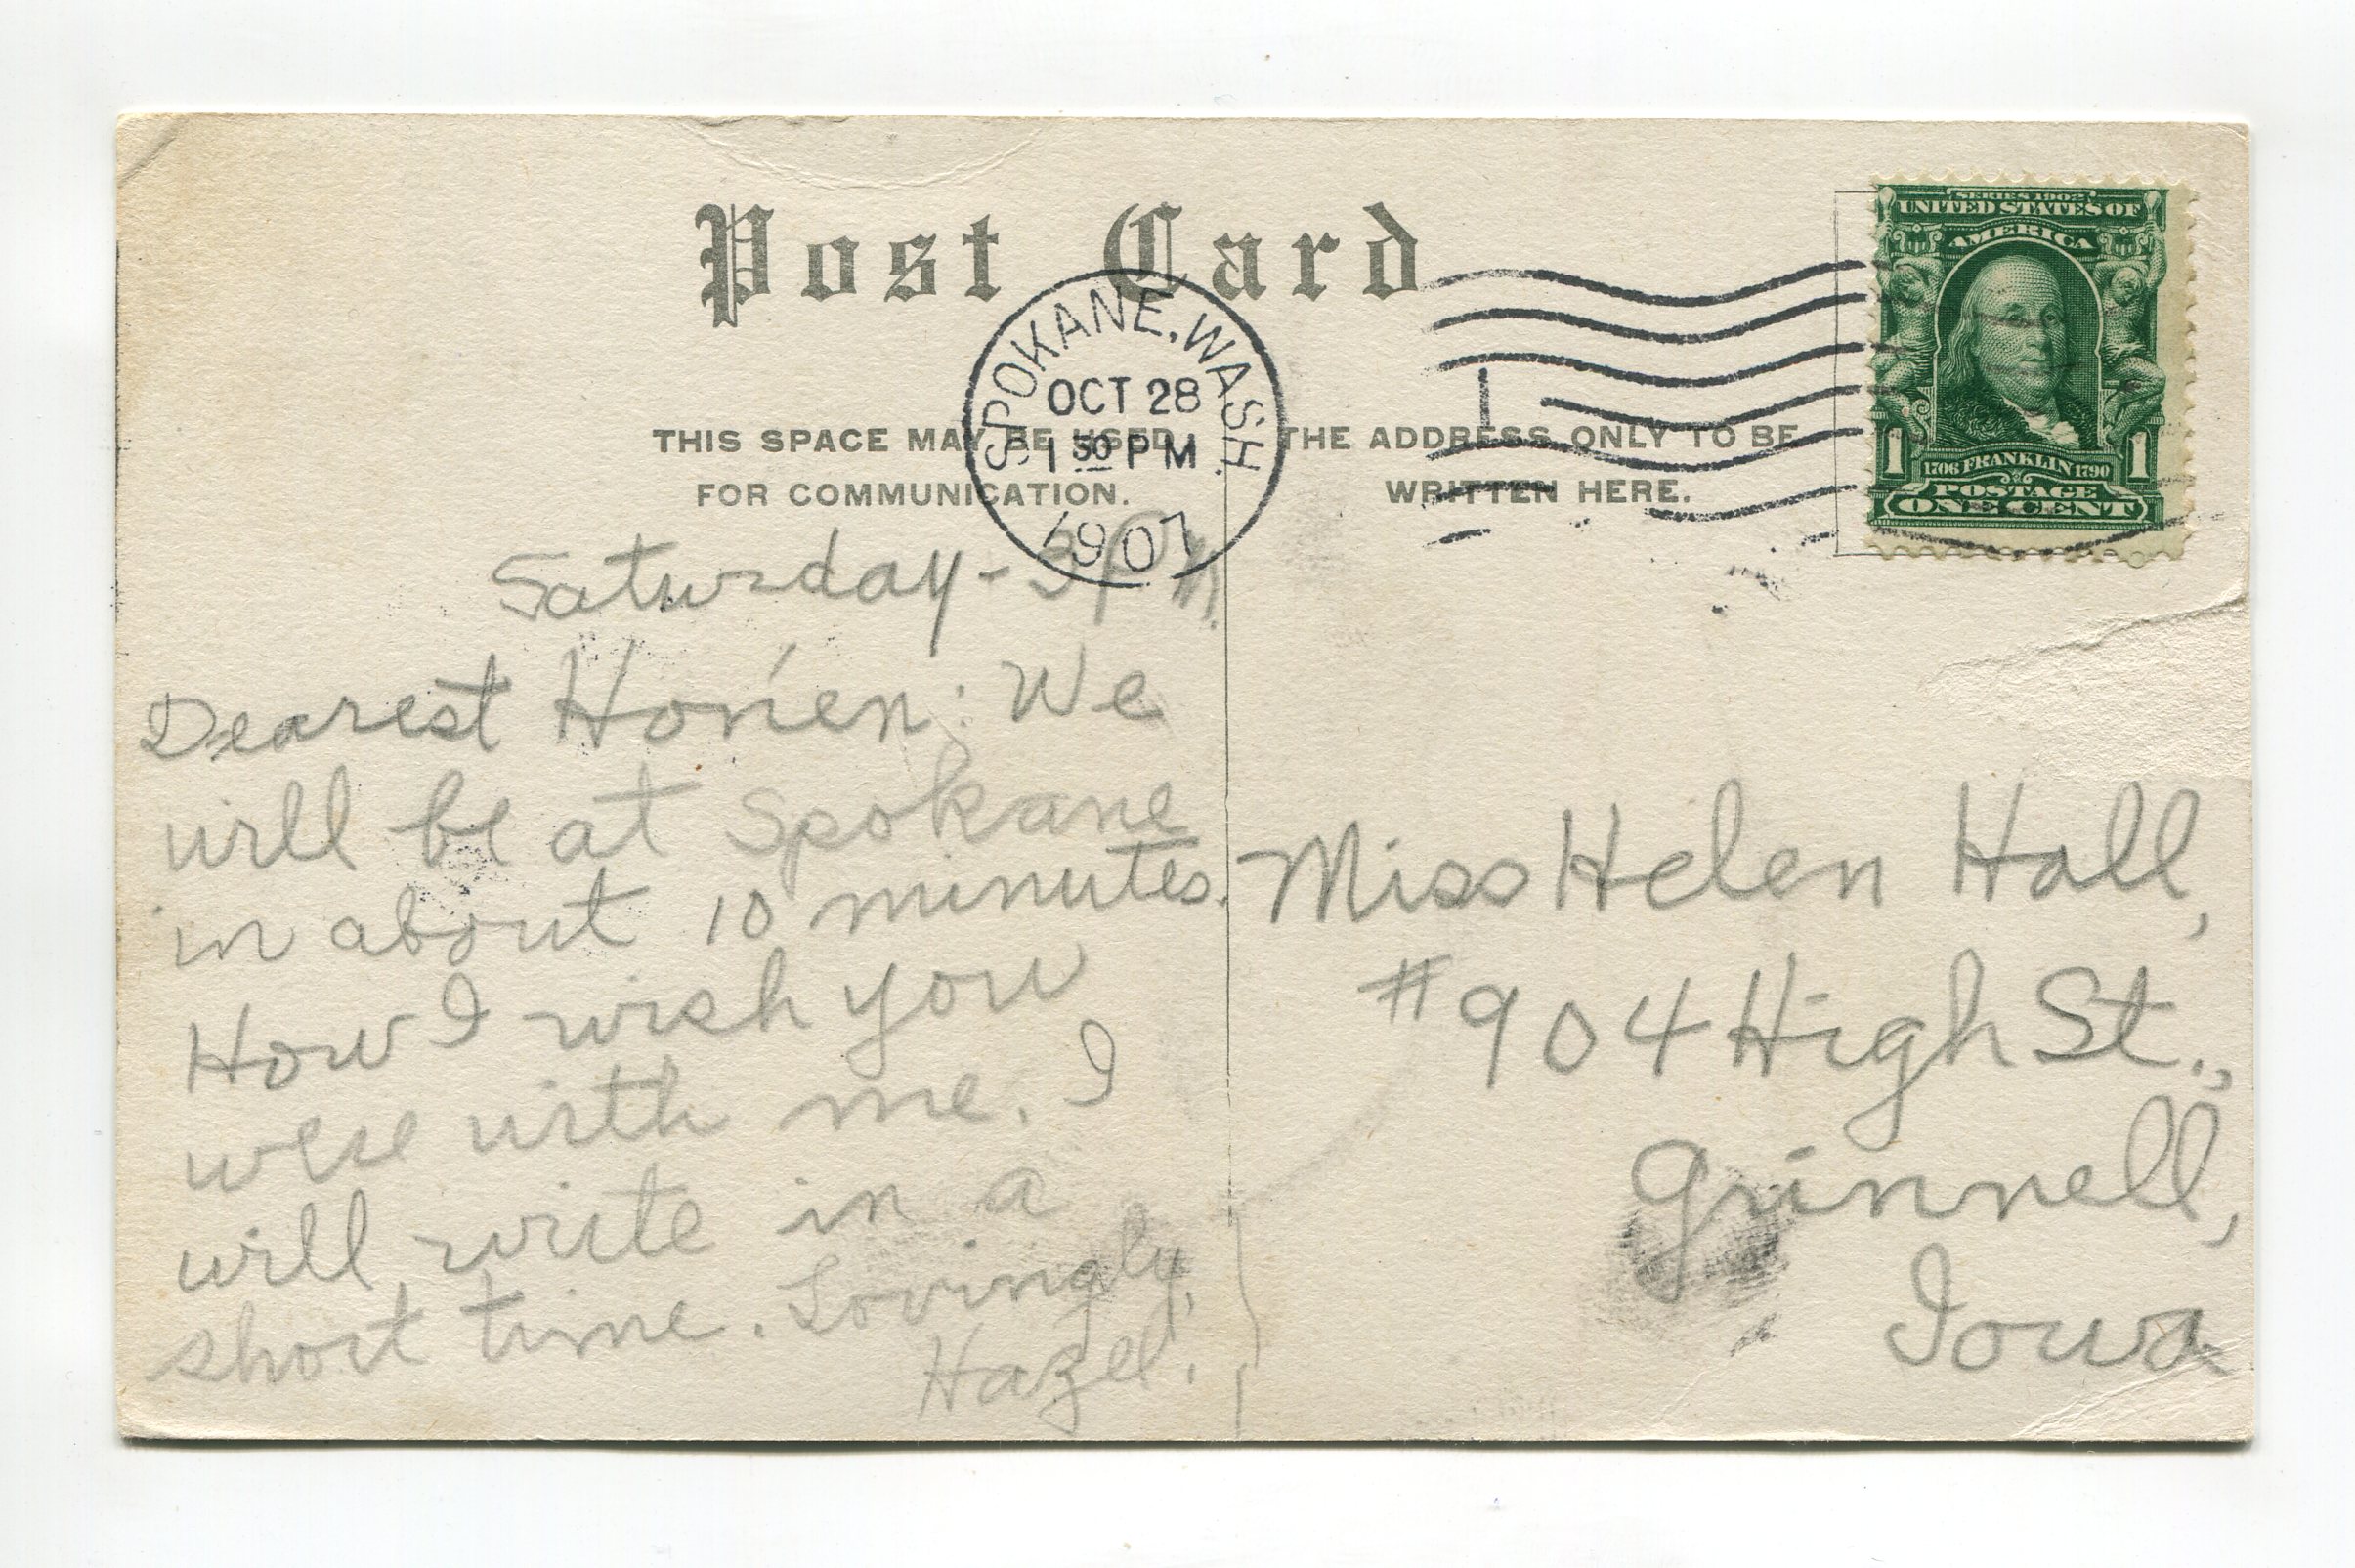 Post Card
SERIES 1902
UNITED STATES OF
AMERICA
1706 FRANKLIN 1790
1 1
POSTAGE
ONE CENT
SPOKANE, WASH.
OCT 28
1 30 PM
1907
1
THIS SPACE MAY BE USED
FOR COMMUNICATION.
THE ADDRESS ONLY TO BE
WRITTEN HERE.
Saturday - 3 P.M.
Dearest : We
will be at Spokane
in about 10 minutes.
How I wish you
were with me. I
will write in a
short time. Lovingly,
Hazel.
Miss Helen Hall,
#904 High St.,
Grinnell,
Iowa